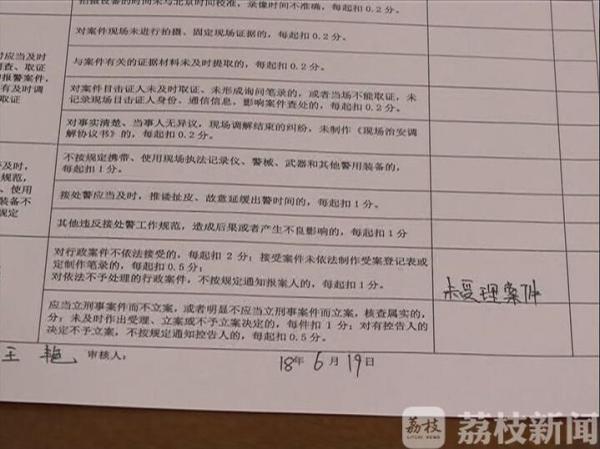 拍摄设备的时间未与北京时间校准，录像时间不准确，每起扣0.2分。
对案件现场未进行拍摄、固定现场证据的，每起扣0.2分。
时应当及时
与案件有关的证据材料未及时提取的，每起扣0.2分。
查、取证
的报警案件，
有及时调
取证
对案件目击证人未及时取证、未形成询问笔录的，或者当场不能取证，未
记录现场目击证人身份、通信信息，影响案件查处的，每起扣0.2分。
对事实清楚、当事人无异议，现场调解结束的纠纷，未制作《现场治安调
解协议书》的，每起扣0.2分。
及时，
规范，
、使用
装备不
规定
不按规定携带、使用现场执法记录仪、警械、武器和其他警用装备的，
每起扣1分。
接处警应当及时，推诿扯皮、故意延缓出警时间的，每起扣1分。
其他违反接处警工作规范，造成后果或者产生不良影响的，每起扣1分
对行政案件不依法接受的，每起扣2分；接受案件未依法制作受案登记表或
定制作笔录的，每起扣0.5分；
对依法不予处理的行政案件，不按规定通知报案人的，每起扣1分。
未受理案件
应当立刑事案件而不立案，或者明显不应当立刑事案件而立案，核查属实的，
分；未及时作出受理、立案或不予立案决定的，每件扣1分；对有控告人的
决定不予立案，不按规定通知控告人的，每起扣0.5分。
王艳 审核人： 18年6月19日
荔枝
LITCHI NEWS
荔枝新闻